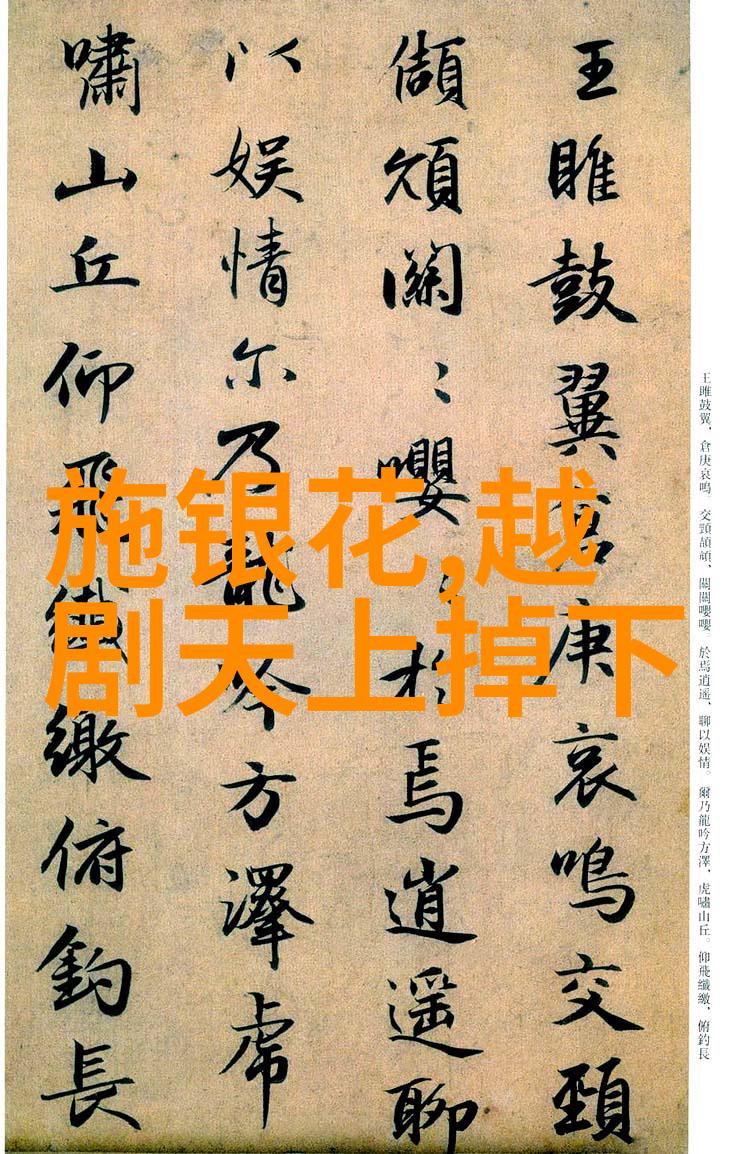 王雎鼓翼、倉庚哀鳴。交頸頡頏、關關嚶嚶。於焉逍遥、聊以娱情。爾乃龍吟方澤、虎嘯山丘。仰飛纖繳、俯釣長
王雎鼓翼倉庚哀鳴交頸
頡頏關〻嚶〻於焉逍遥聊
以娱情尔乃龍吟方澤虎
嘯山丘仰飛纖繳俯釣長
施银花,越
剧天上掉下